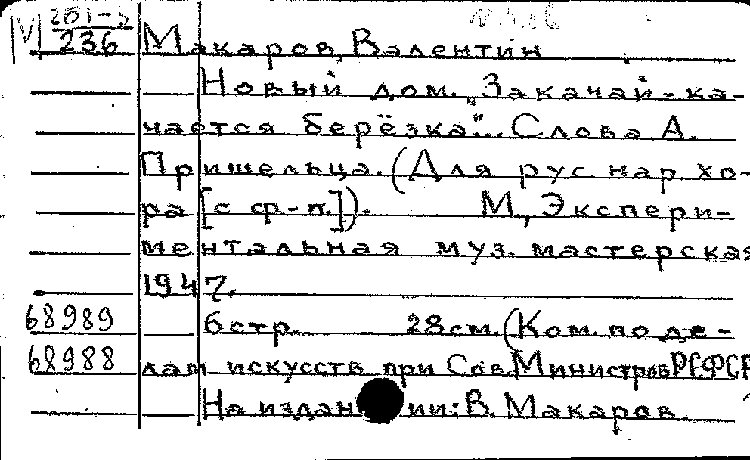 |V| 261-5
236
Макаров, Валентин
Новый дом. „Закачай-ка-
чается берёзка“... Слова А.
Пришельца. (Для рус. нар. хо-
ра [с ф-п.]). М., Экспери-
ментальная муз. мастерская
1947.
68989 6 стр. 28 см. (Ком. по де-
68988 лам искусств при Сов. Министров РСФСР
На издании: В. Макаров.